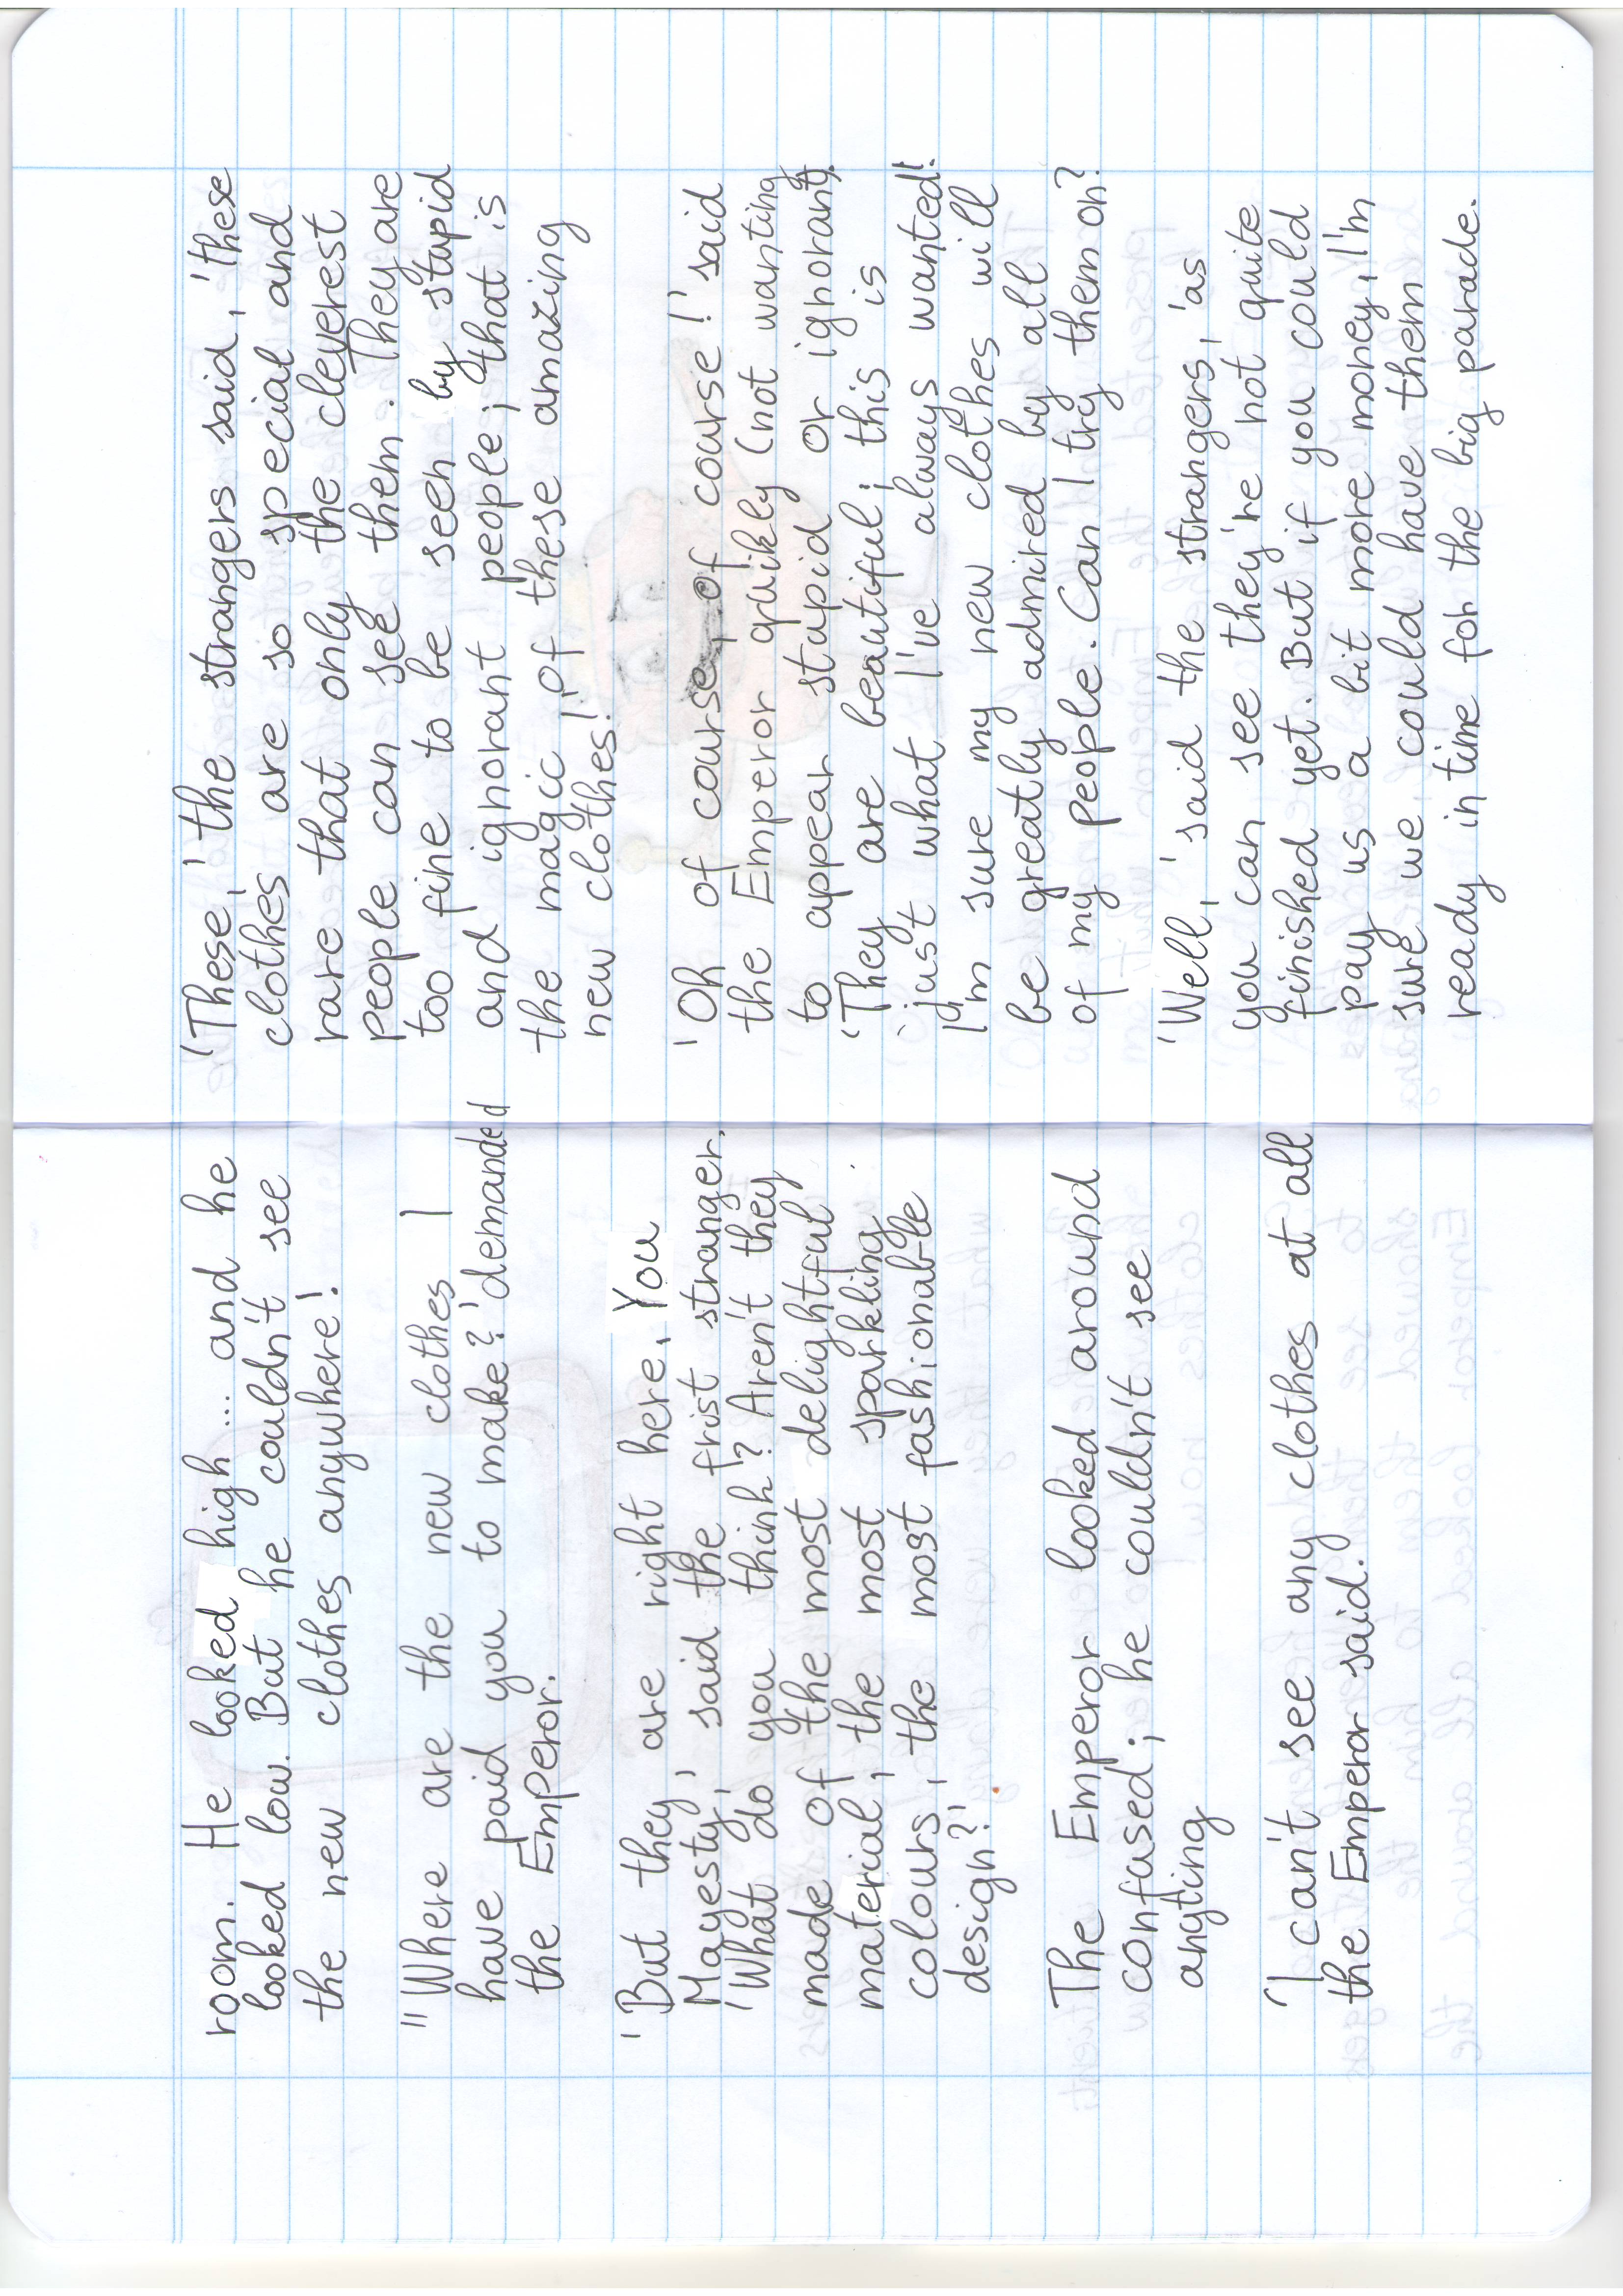 room. He looked high... and he
looked low. But he couldn't see
the new clothes anywhere!
"Where are the new clothes I
have paid you to make?' demanded
the Emperor.
'But they are right here, You
Mayesty,' said the frist stranger.
'What do you think? Aren't they
made of the most delightful
material, the most sparkling
colours, the most fashionable
design?'
The Emperor looked around
confused; he couldn't see
anyting
'I can't see any clothes at all
the Emperor said.'
'These,' the strangers said, 'these
clothes are so special and
rare that only the cleverest
people can see them. They are
too fine to be seen by stupid
and ignorant people; that is
the magic of these amazing
new clothes!'
'Oh of course, of course!' said
the Emperor quikly (not wanting
to appear stupid or ignorant).
'They are beautiful; this is
just what I've always wanted!
I'm sure my new clothes will
be greatly admired by all
of my people. Can I try them on?
'Well,' said the strangers, 'as
you can see they're not quite
finished yet. But if you could
pay us a bit more money, I'm
sure we could have them
ready in time for the big parade.